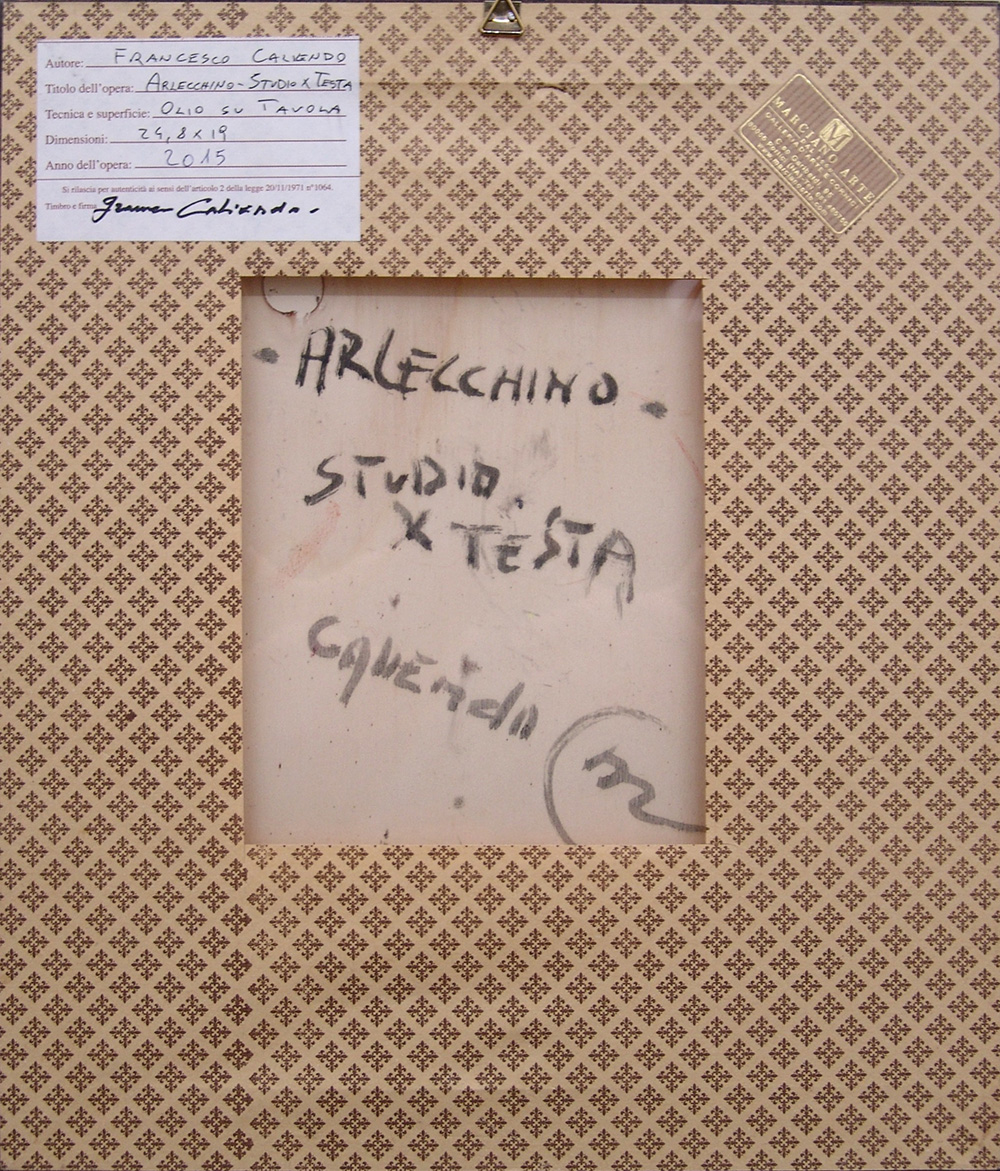 Autore: FRANCESCO CALIENDO
Titolo dell'opera: ARLECCHINO - STUDIO X TESTA
Tecnica e superficie: OLIO SU TAVOLA
Dimensioni: 24,8 x 19
Anno dell'opera: 2015
Si rilascia per autenticità ai sensi dell'articolo 2 della legge 20/11/1971 n°1064.
Timbro e firma Caliendo.
M
MARCIANO ARTE
GALLERIA D'ARTE & CORNICI
• ARLECCHINO •
STUDIO
X TESTA
CALIENDO